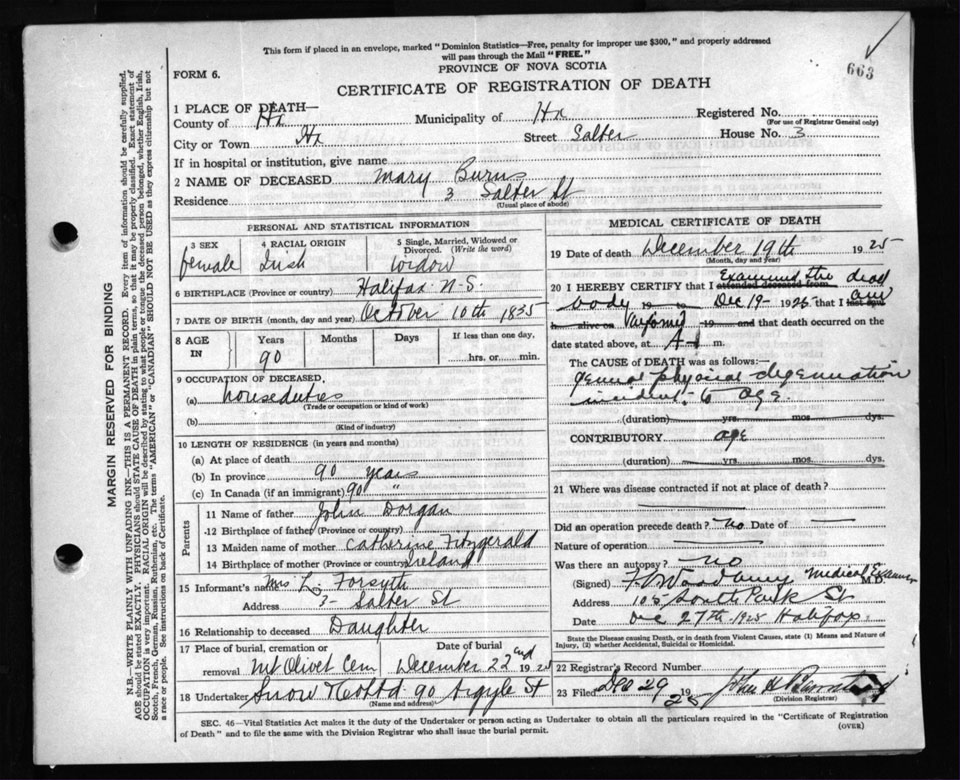 663
This form if placed in an envelope, marked "Dominion Statistics—Free, penalty for improper use $300," and properly addressed
will pass through the Mail "FREE."
FORM 6.
PROVINCE OF NOVA SCOTIA
CERTIFICATE OF REGISTRATION OF DEATH
1 PLACE OF DEATH—
County of Hx Municipality of Hx Registered No.
(For use of Registrar General only)
City or Town Hx Street Salter House No. 3
If in hospital or institution, give name
2 NAME OF DECEASED Mary Burns
Residence 3 Salter St
(Usual place of abode)
PERSONAL AND STATISTICAL INFORMATION
3 SEX 4 RACIAL ORIGIN 5 Single, Married, Widowed or Divorced. (Write the word)
female Irish widow
6 BIRTHPLACE (Province or country) Halifax N.S.
7 DATE OF BIRTH (month, day and year) October 10th 1835
8 AGE IN Years Months Days If less than one day,
90 hrs. or min.
9 OCCUPATION OF DECEASED,
(a) houseduties
(Trade or occupation or kind of work)
(b)
(Kind of industry)
10 LENGTH OF RESIDENCE (in years and months)
(a) At place of death
(b) In province 90 years
(c) In Canada (if an immigrant) 90 "
Parents
11 Name of father John Dorgan
12 Birthplace of father (Province or country)
13 Maiden name of mother Catherine Fitzgerald
14 Birthplace of mother (Province or country) Ireland
15 Informant's name Mrs L. Forsyth
Address 3- Salter St
16 Relationship to deceased Daughter
17 Place of burial, cremation or removal Mt Olivet Cem Date of burial December 22nd 19 25
18 Undertaker Snow & Co Ltd 90 Argyle St
(Name and address)
MEDICAL CERTIFICATE OF DEATH
19 Date of death December 19th 1925
(Month, day and year)
20 I HEREBY CERTIFY that I attended deceased from Examined the dead
body 19 to Dec 19- 1925 that I last saw
h alive on 19 and that death occurred on the
date stated above, at A- m.
The CAUSE of DEATH was as follows:—
General physical degeneration
incident to age.
(duration) yrs. mos. dys.
CONTRIBUTORY age
(duration) yrs. mos. dys.
21 Where was disease contracted if not at place of death?
Did an operation precede death? no Date of
Nature of operation
Was there an autopsy? no
(Signed) Medical Examiner M.D.
Address 105 South Park St
Date Dec 27th 1925 Halifax
State the Disease causing Death, or in death from Violent Causes, state (1) Means and Nature of
Injury, (2) whether Accidental, Suicidal or Homicidal.
22 Registrar's Record Number
23 Filed Dec 29 1925
(Division Registrar)
SEC. 46—Vital Statistics Act makes it the duty of the Undertaker or person acting as Undertaker to obtain all the particulars required in the "Certificate of Registration
of Death" and to file the same with the Division Registrar who shall issue the burial permit.
(OVER)
MARGIN RESERVED FOR BINDING
N.B.—WRITE PLAINLY WITH UNFADING INK—THIS IS A PERMANENT RECORD. Every item of information should be carefully supplied.
AGE should be stated EXACTLY. PHYSICIANS should STATE CAUSE OF DEATH in plain terms, so that it may be properly classified. Exact statement of
OCCUPATION is very important. RACIAL ORIGIN will be described by stating to what people or tongue the deceased person belonged, whether English, Irish,
Scotch, French, German, Russian, Ruthenian, etc. The terms "AMERICAN" or "CANADIAN" SHOULD NOT BE USED as they express citizenship but not
a race or people. See instructions on back of Certificate.